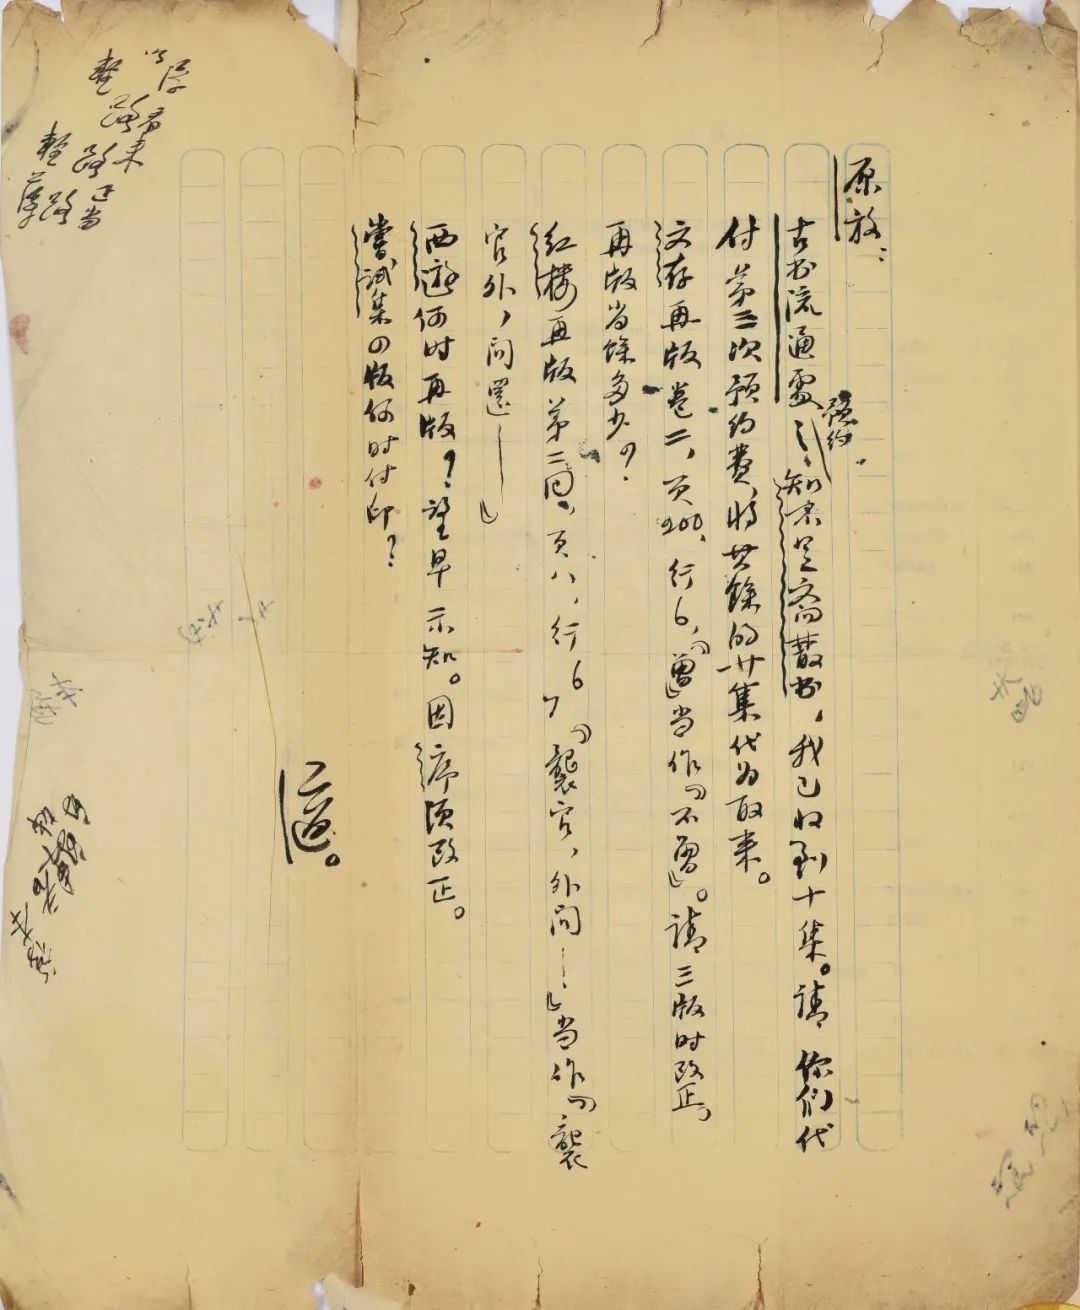 原放：
古书流通处预约之知不足斋丛书，我已收到十集。请你们代
付第三次预约费，将其馀的廿集代为取来。
文存再版卷二，页200，行6，「曾」当作「不曾」。请三版时改正。
再版尚馀多少？
红楼再版第二回，页八，行6—7「袭官，外间——」当作「袭
官外，间还——」
西游何时再版？望早示知。因序须改正。
尝试集四版何时付印？
适。